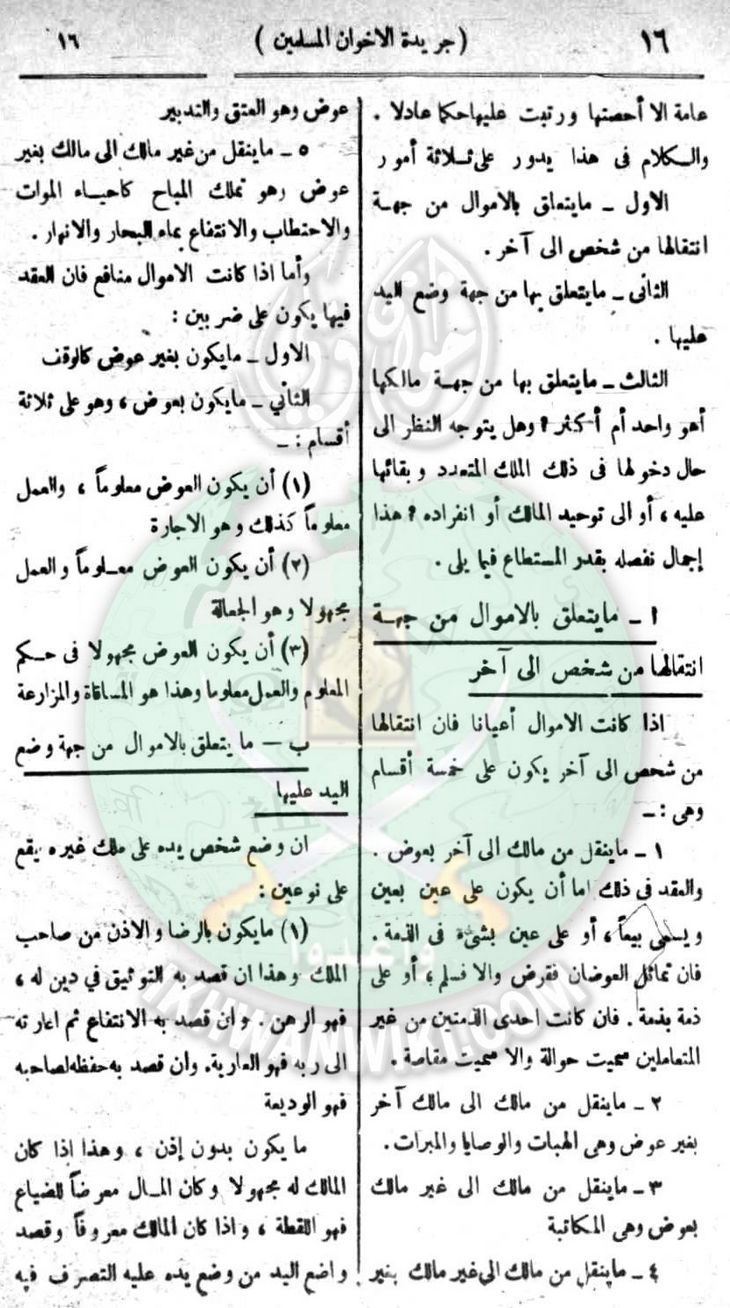 ١٦ ( جريدة الاخوان المسلمين ) ١٦
عامة الا أحصتها ورتبت عليها حكما عادلا .
والكلام فى هذا يدور على ثلاثة أمور
الاول ـ مايتعلق بالاموال من جهة
انتقالها من شخص الى آخر .
الثانى ـ مايتعلق بها من جهة وضع اليد
عليها .
الثالث ـ مايتعلق بها من جهة مالكها
أهو واحد أم أكثر ؟ وهل يتوجه النظر الى
حال دخولها فى ذلك الملك المتعدد وبقائها
عليه ، أو الى توحيد المالك أو انفراده ؟ هذا
إجمال نفصله بقدر المستطاع فيما يلى .
ا ـ مايتعلق بالاموال من جهة
انتقالها من شخص الى آخر
اذا كانت الاموال أعيانا فان انتقالها
من شخص الى آخر يكون على خمسة أقسام
وهى : ـ
١ ـ ماينقل من مالك الى آخر بعوض .
والعقد فى ذلك اما أن يكون على عين بعين
ويسمى بيعاً ، أو على عين بشىء فى الذمة .
فان تماثل العوضان فقرض والا فسلم ، أو على
ذمة بذمة . فان كانت احدى الذمتين من غير
المتعاملين سميت حوالة والا سميت مقاصة .
٢ ـ ماينقل من مالك الى مالك آخر
بغير عوض وهى الهبات والوصايا والمبرات .
٣ ـ ماينقل من مالك الى غير مالك
بعوض وهى المكاتبة
٤ ـ ماينقل من مالك الى غير مالك بغير
عوض وهو العتق والتدبير
٥ ـ ماينقل من غير مالك الى مالك بغير
عوض وهو تملك المباح كاحياء الموات
والاحتطاب والانتفاع بماء البحار والانهار .
وأما اذا كانت الاموال منافع فان العقد
فيها يكون على ضربين :
الاول ـ مايكون بغير عوض كالوقف
الثاني ـ مايكون بعوض ، وهو على ثلاثة
أقسام : ـ
(١) أن يكون العوض معلوماً ، والعمل
معلوماً كذلك وهو الاجارة
(٢) أن يكون العوض معلوماً والعمل
مجهولا وهو الجعالة
(٣) أن يكون العوض مجهولا فى حكم
المعلوم والعمل معلوما وهذا هو المساقاة والمزارعة
ب ـ ما يتعلق بالاموال من جهة وضع
اليد عليها
ان وضع شخص يده على ملك غيره يقع
على نوعين :
(١) مايكون بالرضا والاذن من صاحب
الملك وهذا ان قصد به التوثيق في دين له ،
فهو الرهن . وان قصد به الانتفاع ثم اعارته
الى ربه فهو العارية . وان قصد به حفظه لصاحبه
فهو الوديعة
ما يكون بدون إذن ، وهذا اذا كان
المالك له مجهولا وكان المال معرضاً للضياع
فهو اللقطة ، واذا كان المالك معروفاً وقصد
واضع اليد من وضع يده عليه التصرف فيه
وأعدوا
IKHWANWIKI.COM